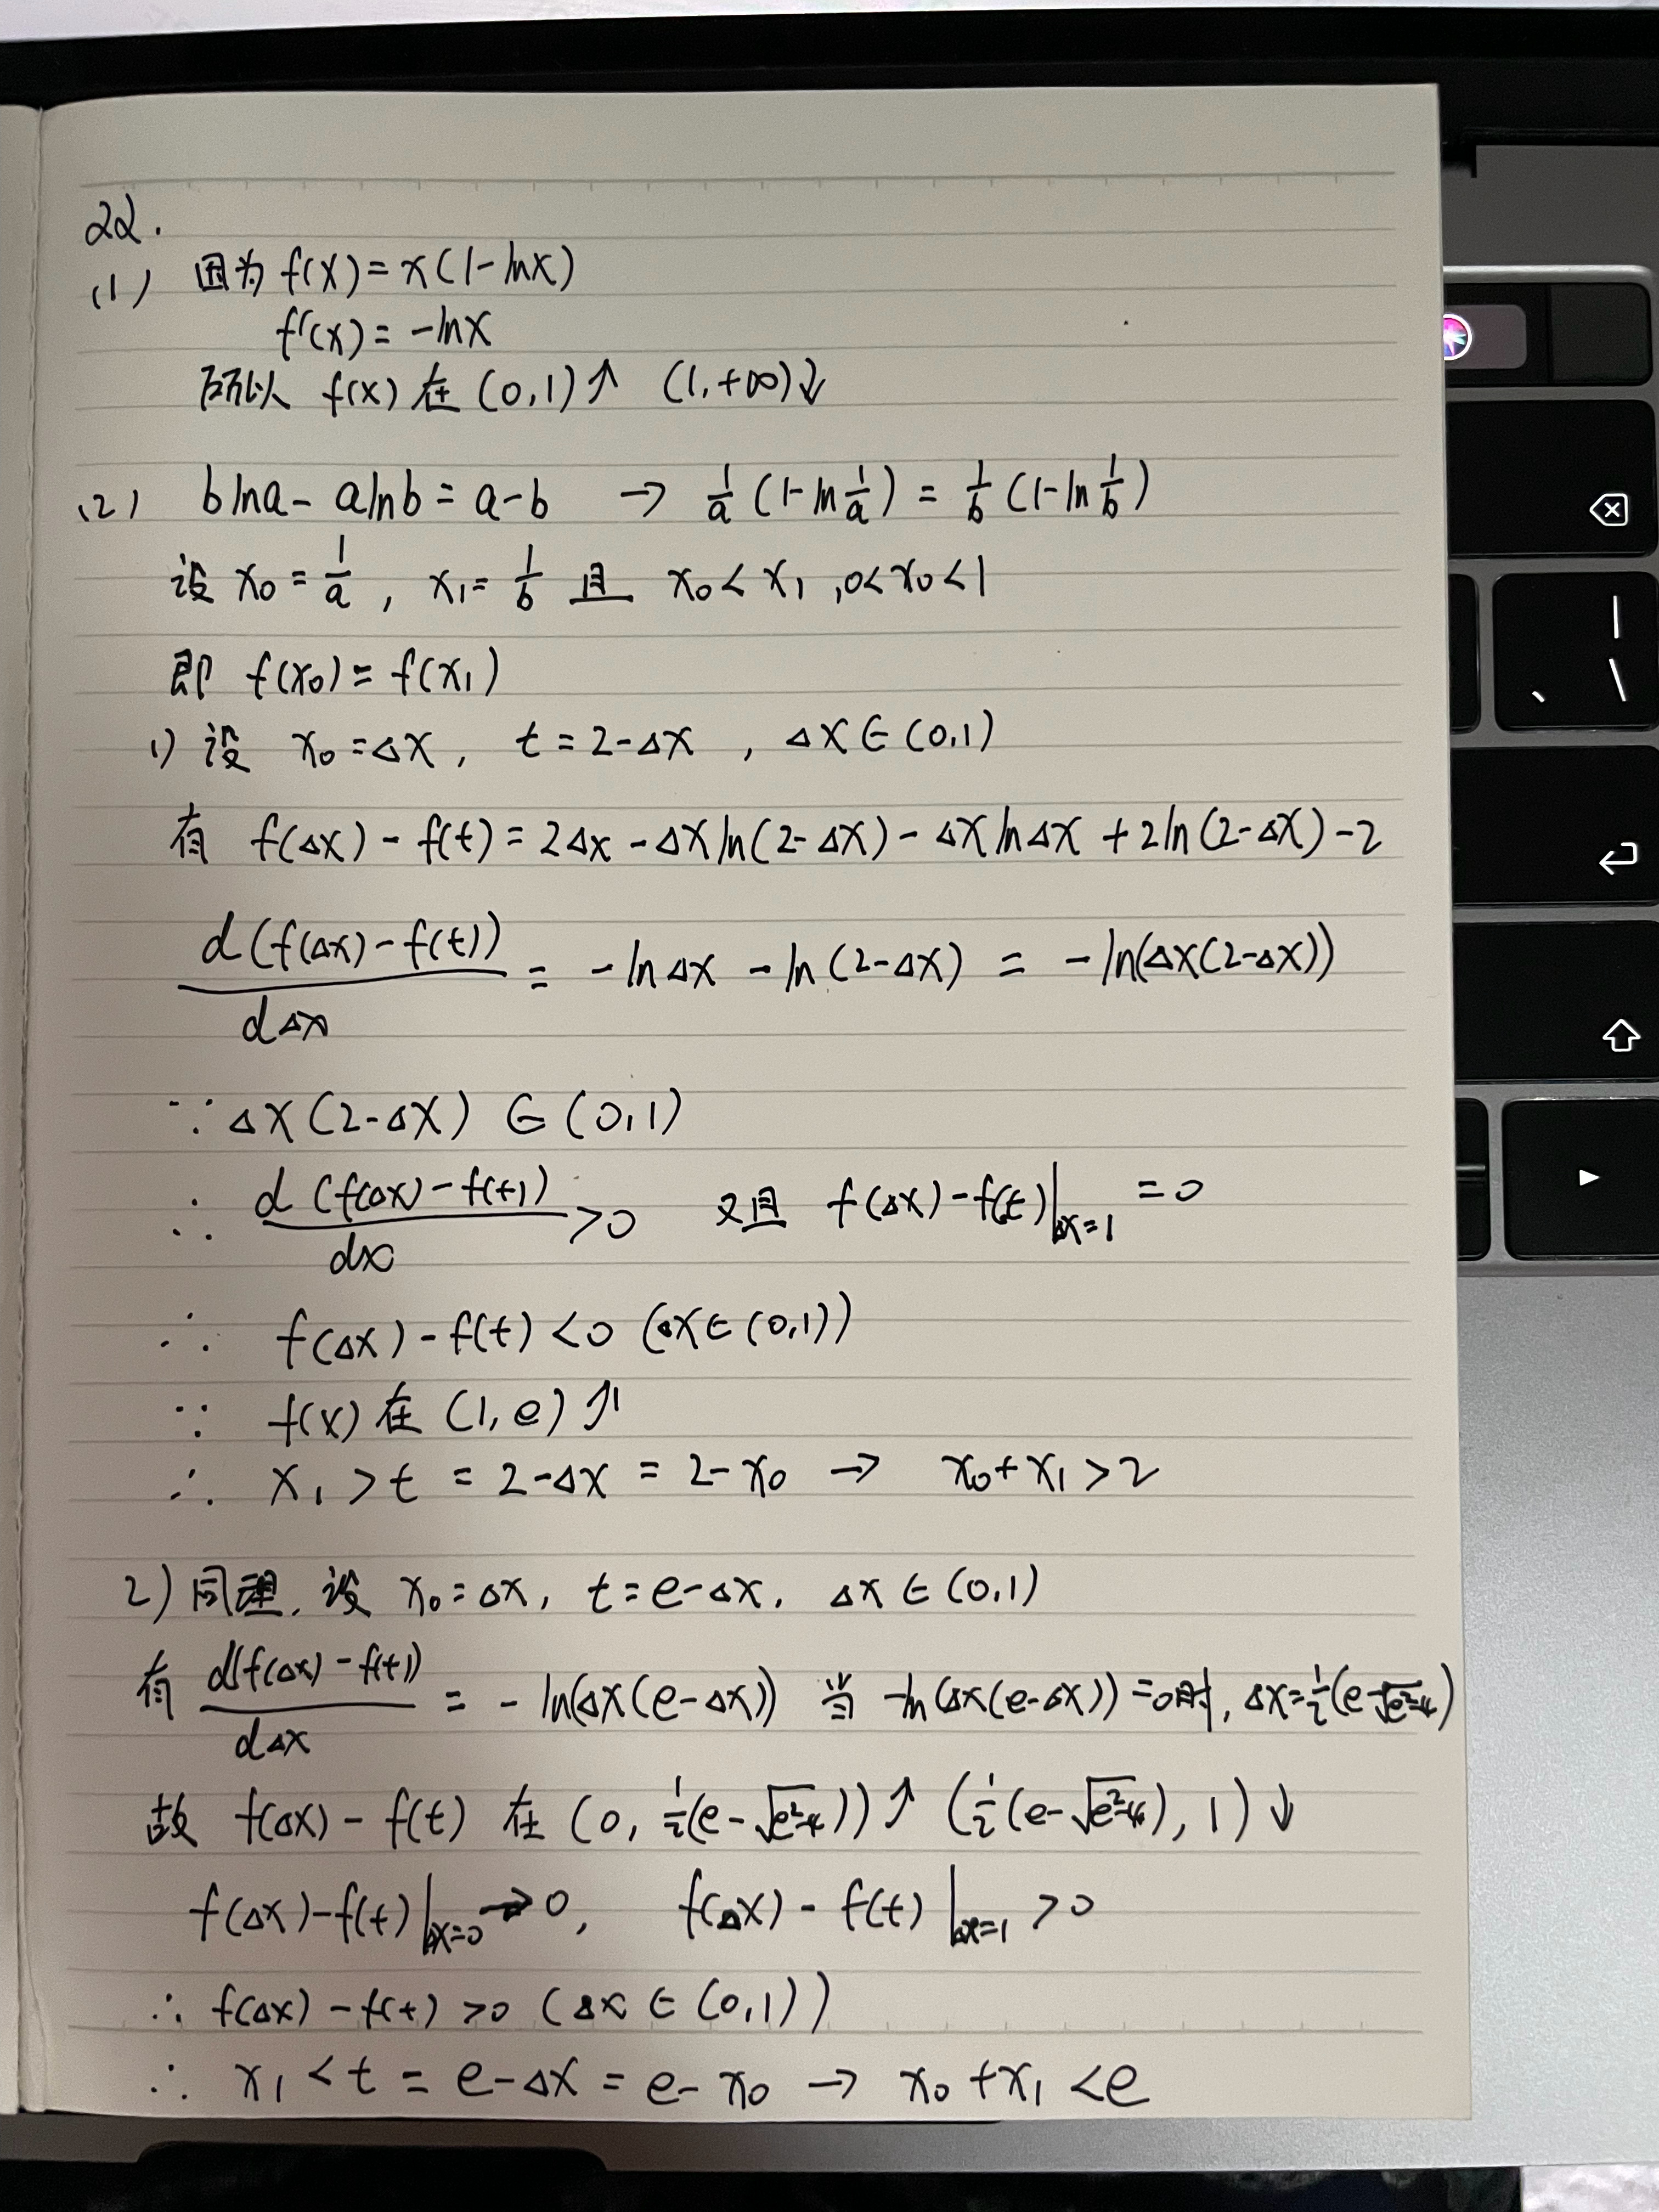 22.
(1) 因为 f(x) = x(1-lnx)
f'(x) = -lnx
所以 f(x) 在 (0,1)↑ (1,+∞)↓
(2) blna - alnb = a-b → 1/a (1-ln 1/a) = 1/b (1-ln 1/b)
设 x₀ = 1/a , x₁ = 1/b 且 x₀ < x₁ , 0< x₀ <1
即 f(x₀) = f(x₁)
1) 设 x₀ = Δx, t = 2-Δx , Δx ∈ (0,1)
有 f(Δx) - f(t) = 2Δx - Δxln(2-Δx) - ΔxlnΔx + 2ln(2-Δx) - 2
d(f(Δx)-f(t))/dΔx = -lnΔx - ln(2-Δx) = -ln(Δx(2-Δx))
∵ Δx(2-Δx) ∈ (0,1)
∴ d(f(Δx)-f(t))/dx >0 又且 f(Δx)-f(t)|Δx=1 = 0
∴ f(Δx) - f(t) < 0 (Δx∈(0,1))
∵ f(x) 在 (1, e) ↑
∴ x₁ > t = 2-Δx = 2-x₀ → x₀+x₁ > 2
2) 同理, 设 x₀ = Δx, t = e-Δx, Δx ∈ (0,1)
有 d(f(Δx)-f(t))/dΔx = -ln(Δx(e-Δx)) 当 -ln(Δx(e-Δx)) = 0时, Δx = 1/2(e-√(e²-4))
故 f(Δx) - f(t) 在 (0, 1/2(e-√(e²-4)))↑ (1/2(e-√(e²-4)), 1)↓
f(Δx)-f(t)|Δx=0 → 0, f(Δx) - f(t)|Δx=1 > 0
∴ f(Δx) - f(t) > 0 (Δx ∈ (0,1))
∴ x₁ < t = e-Δx = e-x₀ → x₀+x₁ < e